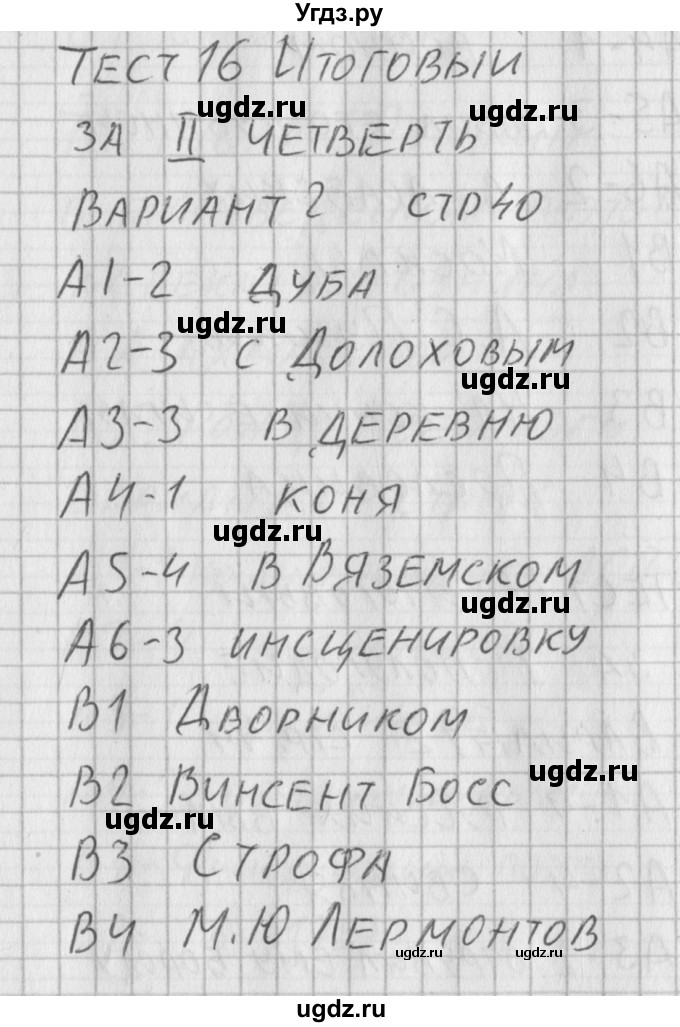 Угдз.ру
ТЕСТ 16 ИТОГОВЫЙ
ugdz.ru ugdz.ru
ЗА II ЧЕТВЕРТЬ
ВАРИАНТ 2 СТР 40
А1-2 ДУБА
ugdz.ru
А2-3 С ДОЛОХОВЫМ
ugdz.ru
А3-3 В ДЕРЕВНЮ
А4-1 КОНЯ
ugdz.ru
А5-4 В ВЯЗЕМСКОМ
ugdz.ru
А6-3 ИНСЦЕНИРОВКУ
В1 ДВОРНИКОМ
ugdz.ru
В2 ВИНСЕНТ БОСС
ugdz.ru
В3 СТРОФА
В4 М.Ю ЛЕРМОНТОВ
ugdz.ru ugdz.ru
ugdz.ru